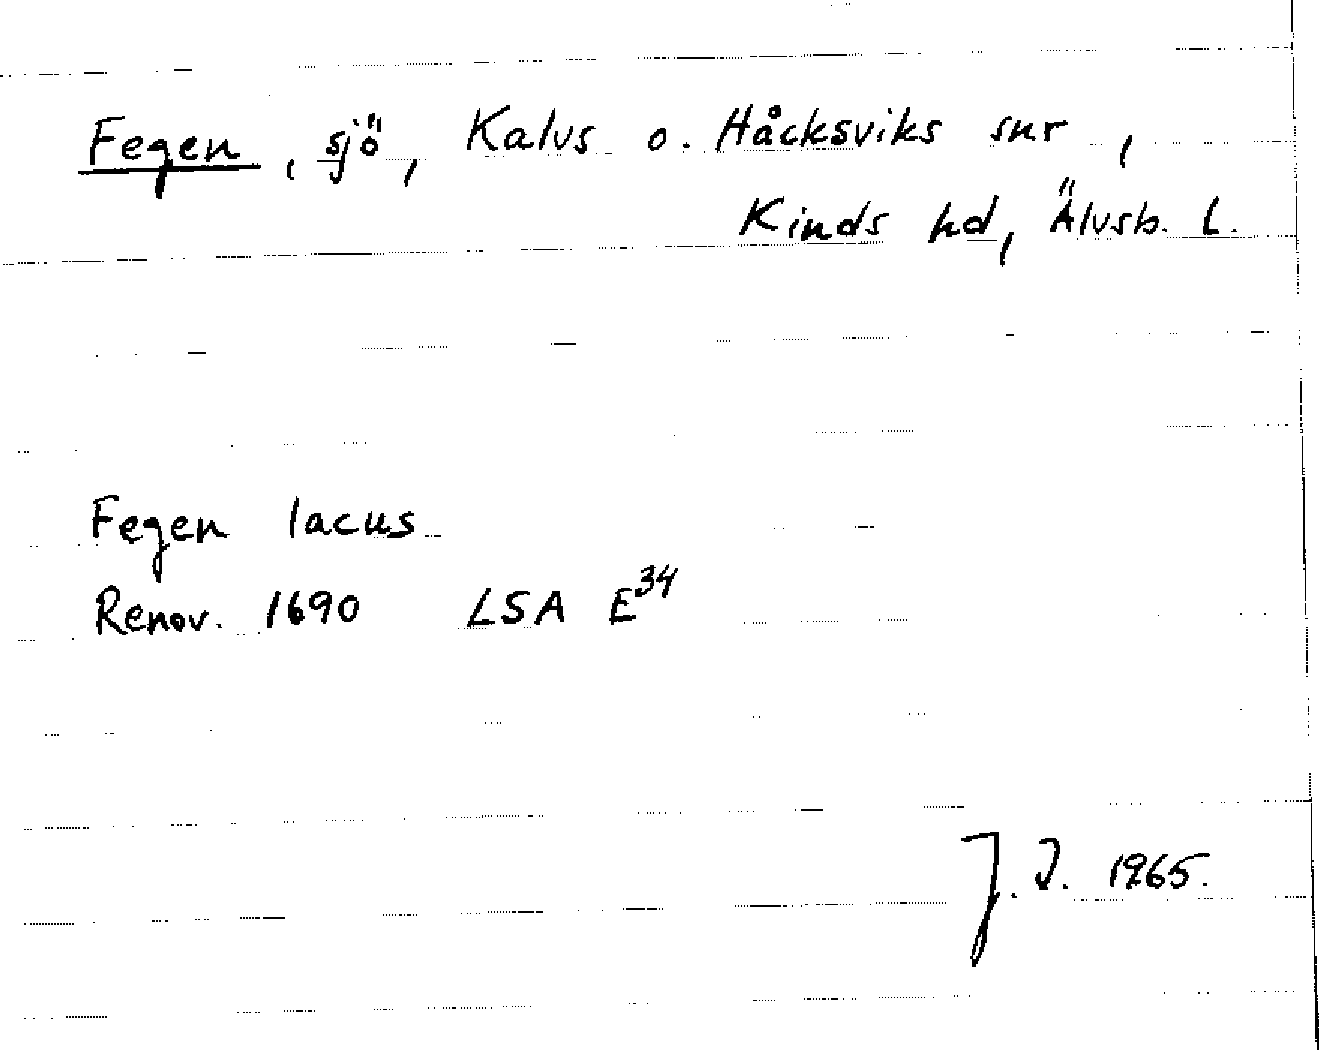 Fegen, sjö, Kalvs o. Håcksviks snr,
Kinds hd, Älvsb. L.
Fegen lacus
Renov. 1690 LSA E34
J. I. 1965.